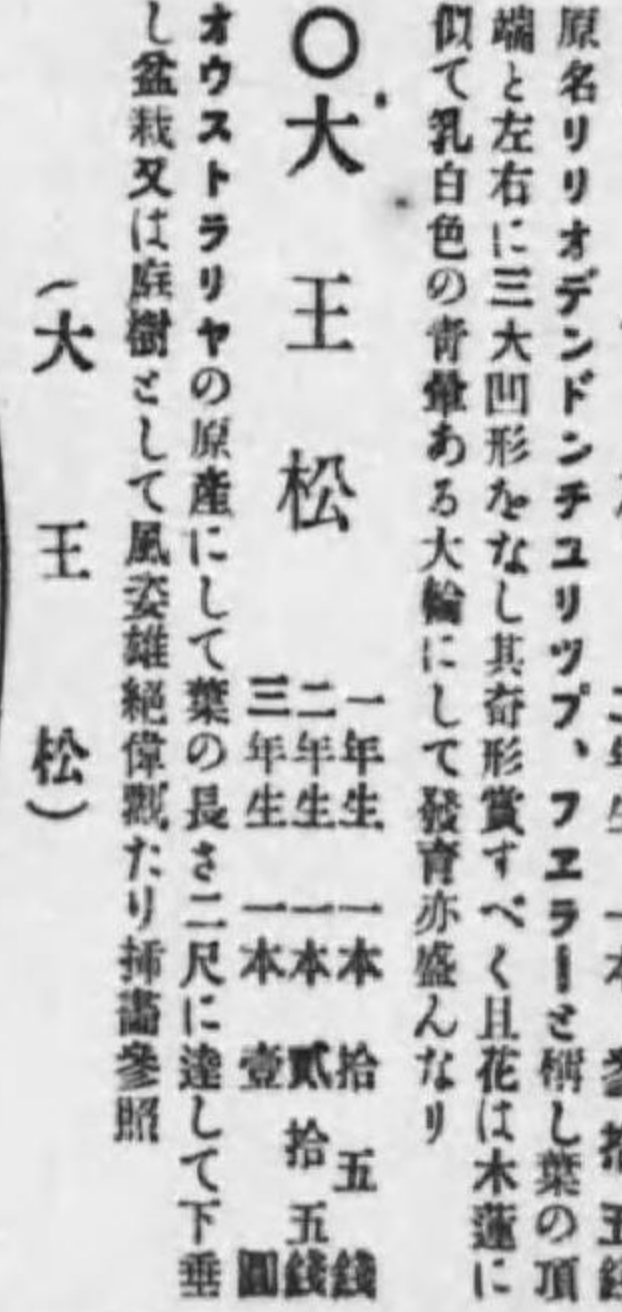 二年生 一本 參拾五錢
原名リリオデンドンチユリツプ、フヱラーと稱し葉の頂
端と左右に三大凹形をなし其奇形賞すべく且花は木蓮に
似て乳白色の青暈ある大輪にして發育亦盛んなり
〇大王松
一年生 一本 拾五錢
二年生 一本 貳拾五錢
三年生 一本 壹圓
オウストラリヤの原産にして葉の長さ二尺に達して下垂
し盆栽又は庭樹として風姿雄絕偉觀たり挿畵參照
(大王松)